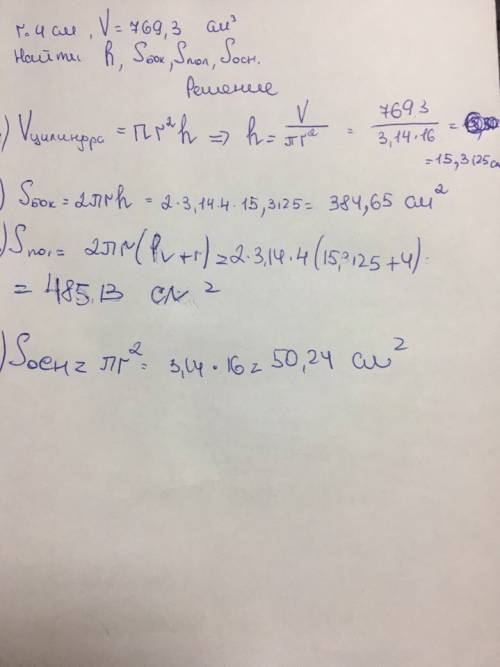 r=4 см, V=769,3 см³
Найти h, Sбок, Sпол, Sосн.
Решение
) Vцилиндра = πr²h => h = V/πr² = 769.3/3,14·16 =
=15,3125 см
) Sбок = 2πrh = 2·3,14·4·15,3125 = 384,65 см²
) Sпол = 2πr(h+r) = 2·3,14·4(15,3125+4)
= 485,13 см²
) Sосн = πr² = 3,14·16 = 50,24 см²